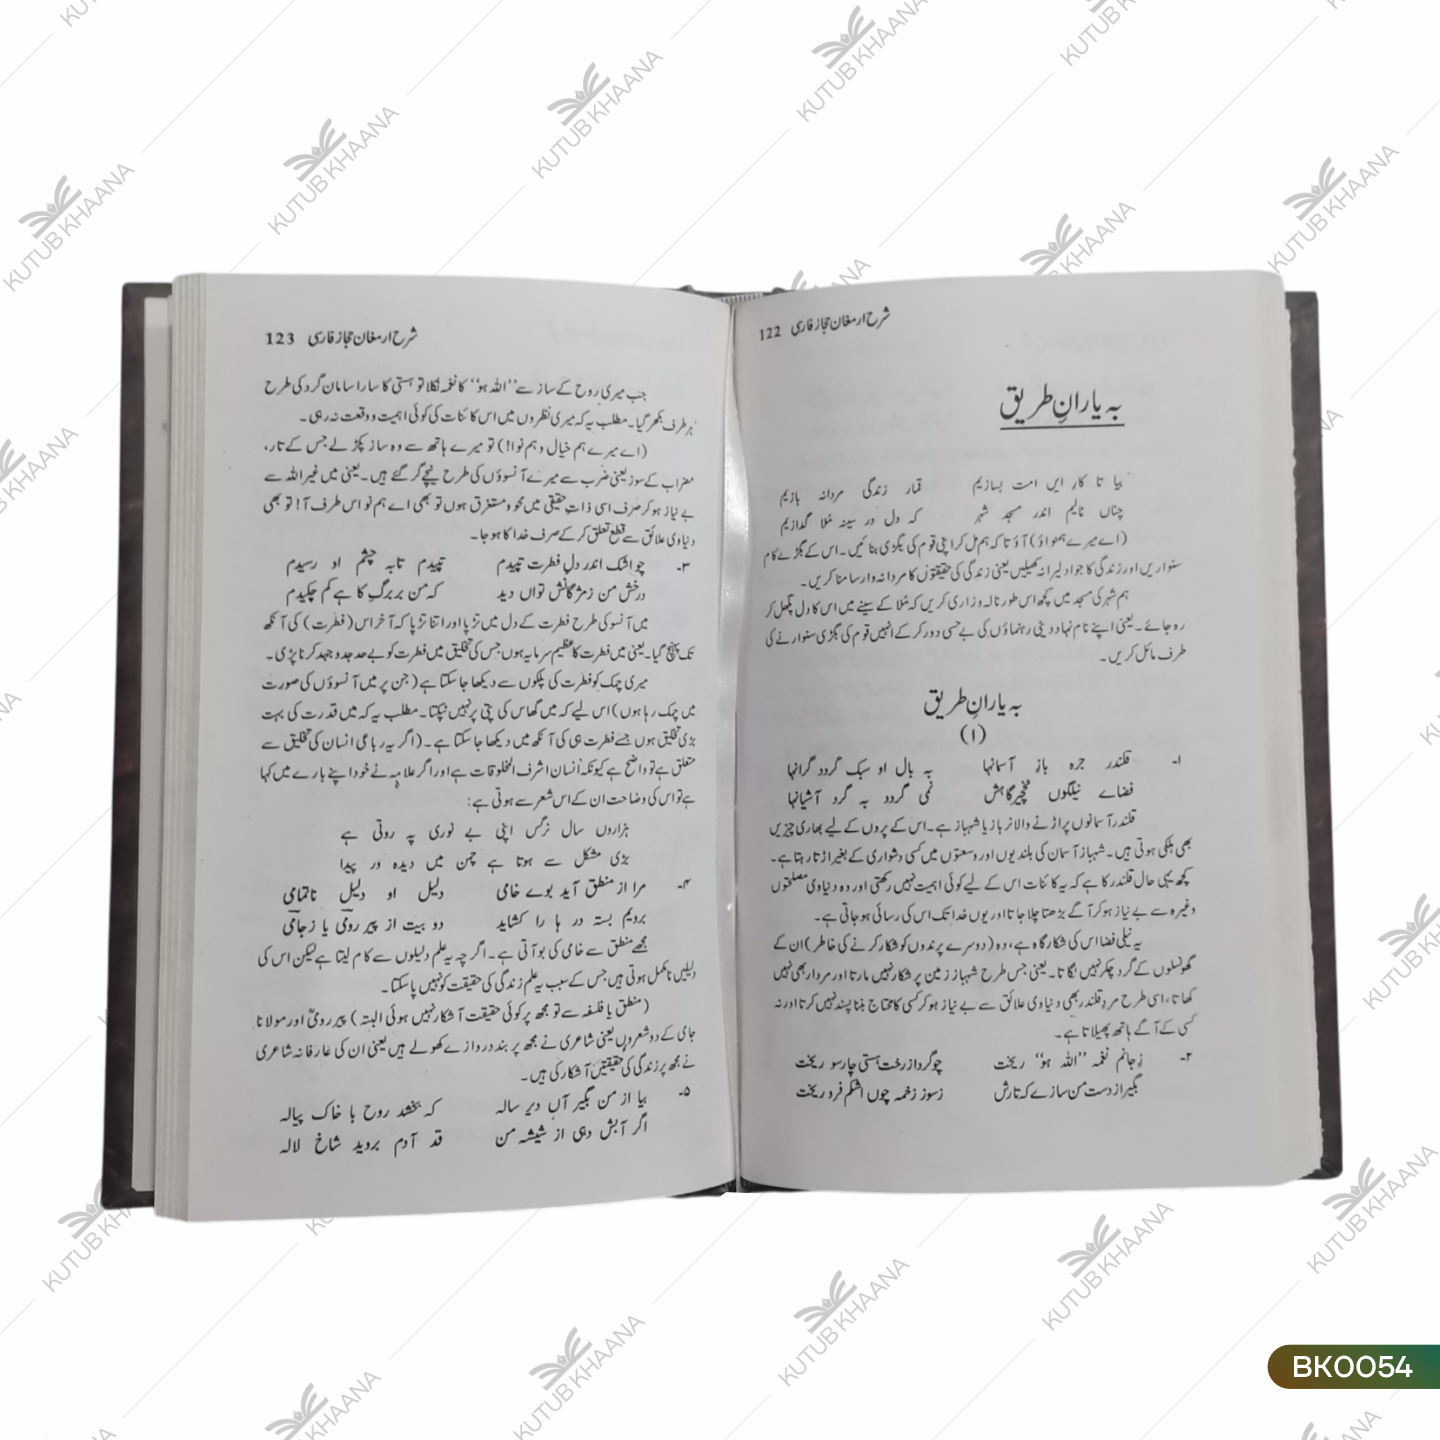 شرح ارمغان حجاز فارسی 122
بہ یارانِ طریق
بیا تا کار ایں امت بسازیم قمار زندگی مردانہ بازیم
چناں نالیم اندر مسجد شہر کہ دل در سینہ مُلا گدازیم
(اے میرے ہمنواؤ) آؤ تا کہ ہم مل کر اپنی قوم کی بگڑی بنائیں۔ اس کے بگڑے کام
سنواریں اور زندگی کا جوا دلیرانہ کھیلیں یعنی زندگی کی حقیقتوں کا مردانہ وار سامنا کریں۔
ہم شہر کی مسجد میں کچھ اس طور نالہ و زاری کریں کہ مُلا کے سینے میں اس کا دل پگھل کر
رہ جائے۔ یعنی اپنے نام نہاد دینی رہنماؤں کی بے حسی دور کر کے انہیں قوم کی بگڑی سنوارنے کی
طرف مائل کریں۔
بہ یارانِ طریق
(۱)
۱۔ قلندر جرہ باز آسمانہا بہ بال او سبک گردد گرانہا
فضاے نیلگوں نخچیر گاہش نمی گردد بہ گرد آشیانہا
قلندر آسمانوں پر اڑنے والا نر باز یا شہباز ہے۔ اس کے پروں کے لیے بھاری چیزیں
بھی ہلکی ہوتی ہیں۔ شہباز آسمان کی بلندیوں اور وسعتوں میں کسی دشواری کے بغیر اڑتا رہتا ہے۔
کچھ یہی حال قلندر کا ہے کہ یہ کائنات اس کے لیے کوئی اہمیت نہیں رکھتی اور وہ دنیاوی مصلحتوں
وغیرہ سے بے نیاز ہو کر آگے بڑھتا چلا جاتا اور یوں خدا تک اس کی رسائی ہو جاتی ہے۔
یہ نیلی فضا اس کی شکار گاہ ہے، وہ (دوسرے پرندوں کو شکار کرنے کی خاطر) ان کے
گھونسلوں کے گرد چکر نہیں لگاتا۔ یعنی جس طرح شہباز زمین پر شکار نہیں مارتا اور مردار بھی نہیں
کھاتا، اسی طرح مردِ قلندر بھی دنیاوی علائق سے بے نیاز ہو کر کسی کا محتاج بننا پسند نہیں کرتا اور نہ
کسی کے آگے ہاتھ پھیلاتا ہے۔
۲۔ زجانم نغمہ "اللہ ہو" ریخت چو گرد از رخت ہستی چار سو ریخت
بگیر از دست من سازے کہ تارش ز سوز زخمہ چوں اشکم فرو ریخت
شرح ارمغان حجاز فارسی 123
جب میری روح کے ساز سے "اللہ ہو" کا نغمہ نکلا تو ہستی کا سارا سامان گرد کی طرح
ہر طرف بکھر گیا۔ مطلب یہ کہ میری نظروں میں اس کائنات کی کوئی اہمیت و وقعت نہ رہی۔
(اے میرے ہم خیال و ہم نوا!) تو میرے ہاتھ سے وہ ساز پکڑ لے جس کے تار،
مضراب کے سوز یعنی ضرب سے میرے آنسوؤں کی طرح نیچے گر گئے ہیں۔ یعنی میں غیر اللہ سے
بے نیاز ہو کر صرف اسی ذاتِ حقیقی میں محو و مستغرق ہوں تو بھی اے ہم نوا اس طرف آ! تو بھی
دنیاوی علائق سے قطع تعلق کر کے صرف خدا کا ہو جا۔
۳۔ چو اشک اندر دلِ فطرت تپیدم تپیدم تابہ چشم او رسیدم
درخش من ز مژگانش تواں دید کہ من بر برگِ کاہے کم چکیدم
میں آنسو کی طرح فطرت کے دل میں تڑپا اور اتنا تڑپا کہ آخر اس (فطرت) کی آنکھ
تک پہنچ گیا۔ یعنی میں فطرت کا عظیم سرمایہ ہوں جس کی تخلیق میں فطرت کو بے حد جدوجہد کرنا پڑی۔
میری چمک کو فطرت کی پلکوں سے دیکھا جا سکتا ہے (جن پر میں آنسوؤں کی صورت
میں چمک رہا ہوں) اس لیے کہ میں گھاس کی پتی پر نہیں ٹپکتا۔ مطلب یہ کہ میں قدرت کی بہت
بڑی تخلیق ہوں جسے فطرت ہی کی آنکھ میں دیکھا جا سکتا ہے۔ (اگر یہ رباعی انسان کی تخلیق سے
متعلق ہے تو واضح ہے کیونکہ انسان اشرف المخلوقات ہے اور اگر علامہ نے خود اپنے بارے میں کہا
ہے تو اس کی وضاحت ان کے اس شعر سے ہوتی ہے:
ہزاروں سال نرگس اپنی بے نوری پہ روتی ہے
بڑی مشکل سے ہوتا ہے چمن میں دیدہ ور پیدا
۴۔ مرا از منطق آید بوے خامی دلیل او دلیل ناتمامی
برویم بستہ در ہا را کشاید دو بیت از پیر رومی یا ز جامی
مجھے منطق سے خامی کی بو آتی ہے۔ اگر چہ یہ علم دلیلوں سے کام لیتا ہے لیکن اس کی
دلیلیں نامکمل ہوتی ہیں جس کے سبب یہ علم زندگی کی حقیقت کو نہیں پا سکتا۔
(منطق یا فلسفہ سے تو مجھ پر کوئی حقیقت آشکار نہیں ہوئی البتہ) پیر رومیؒ اور مولانا
جامی کے دو شعروں یعنی شاعری نے مجھ پر بند دروازے کھولے ہیں یعنی ان کی عارفانہ شاعری
نے مجھ پر زندگی کی حقیقتیں آشکار کی ہیں۔
۵۔ بیا از من بگیر آں دیر سالہ کہ بخشد روح با خاک پیالہ
اگر آبش دہی از شیشہ من قد آدم بروید شاخ لالہ
KUTUB KHAANA
BK0054